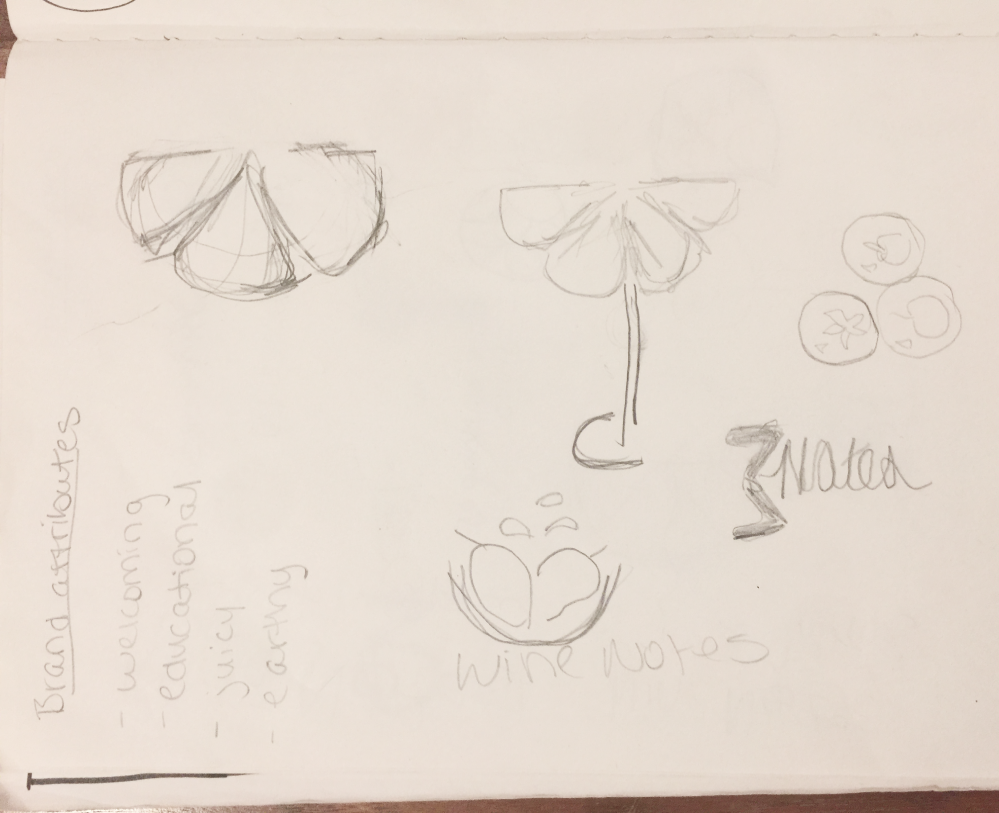 Brand attributes
- welcoming
- educational
- juicy
- earthy
Notes
wine Notes